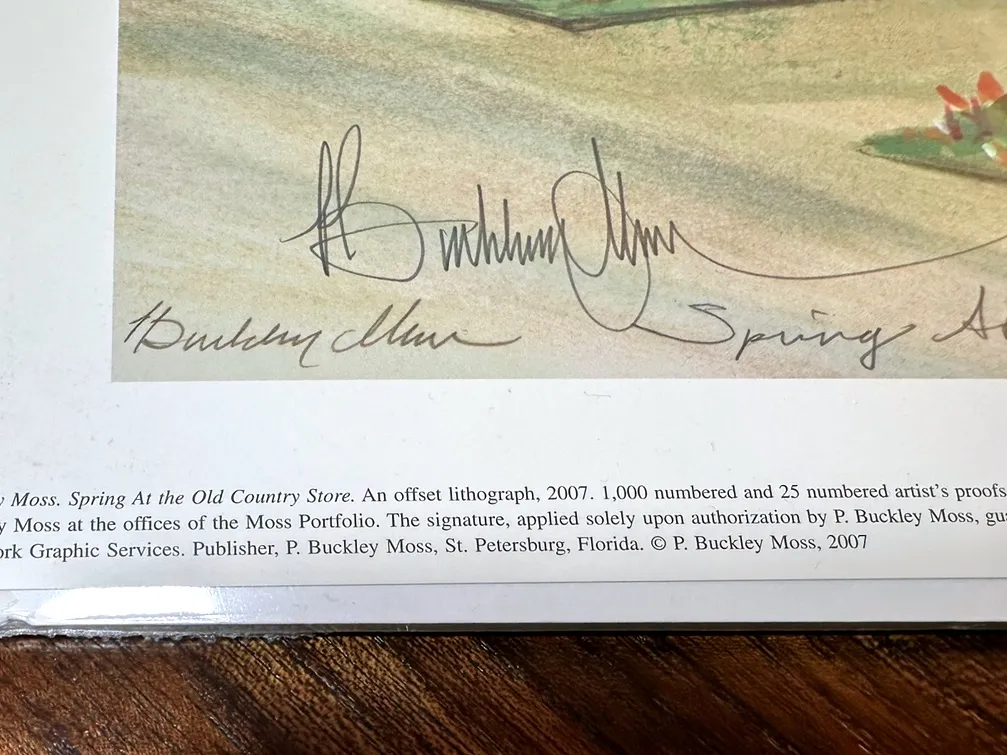 P Buckley Moss
P Buckley Moss Spring
y Moss. Spring At the Old Country Store. An offset lithograph, 2007. 1,000 numbered and 25 numbered artist's proofs
y Moss at the offices of the Moss Portfolio. The signature, applied solely upon authorization by P. Buckley Moss, gu
ork Graphic Services. Publisher, P. Buckley Moss, St. Petersburg, Florida. © P. Buckley Moss, 2007